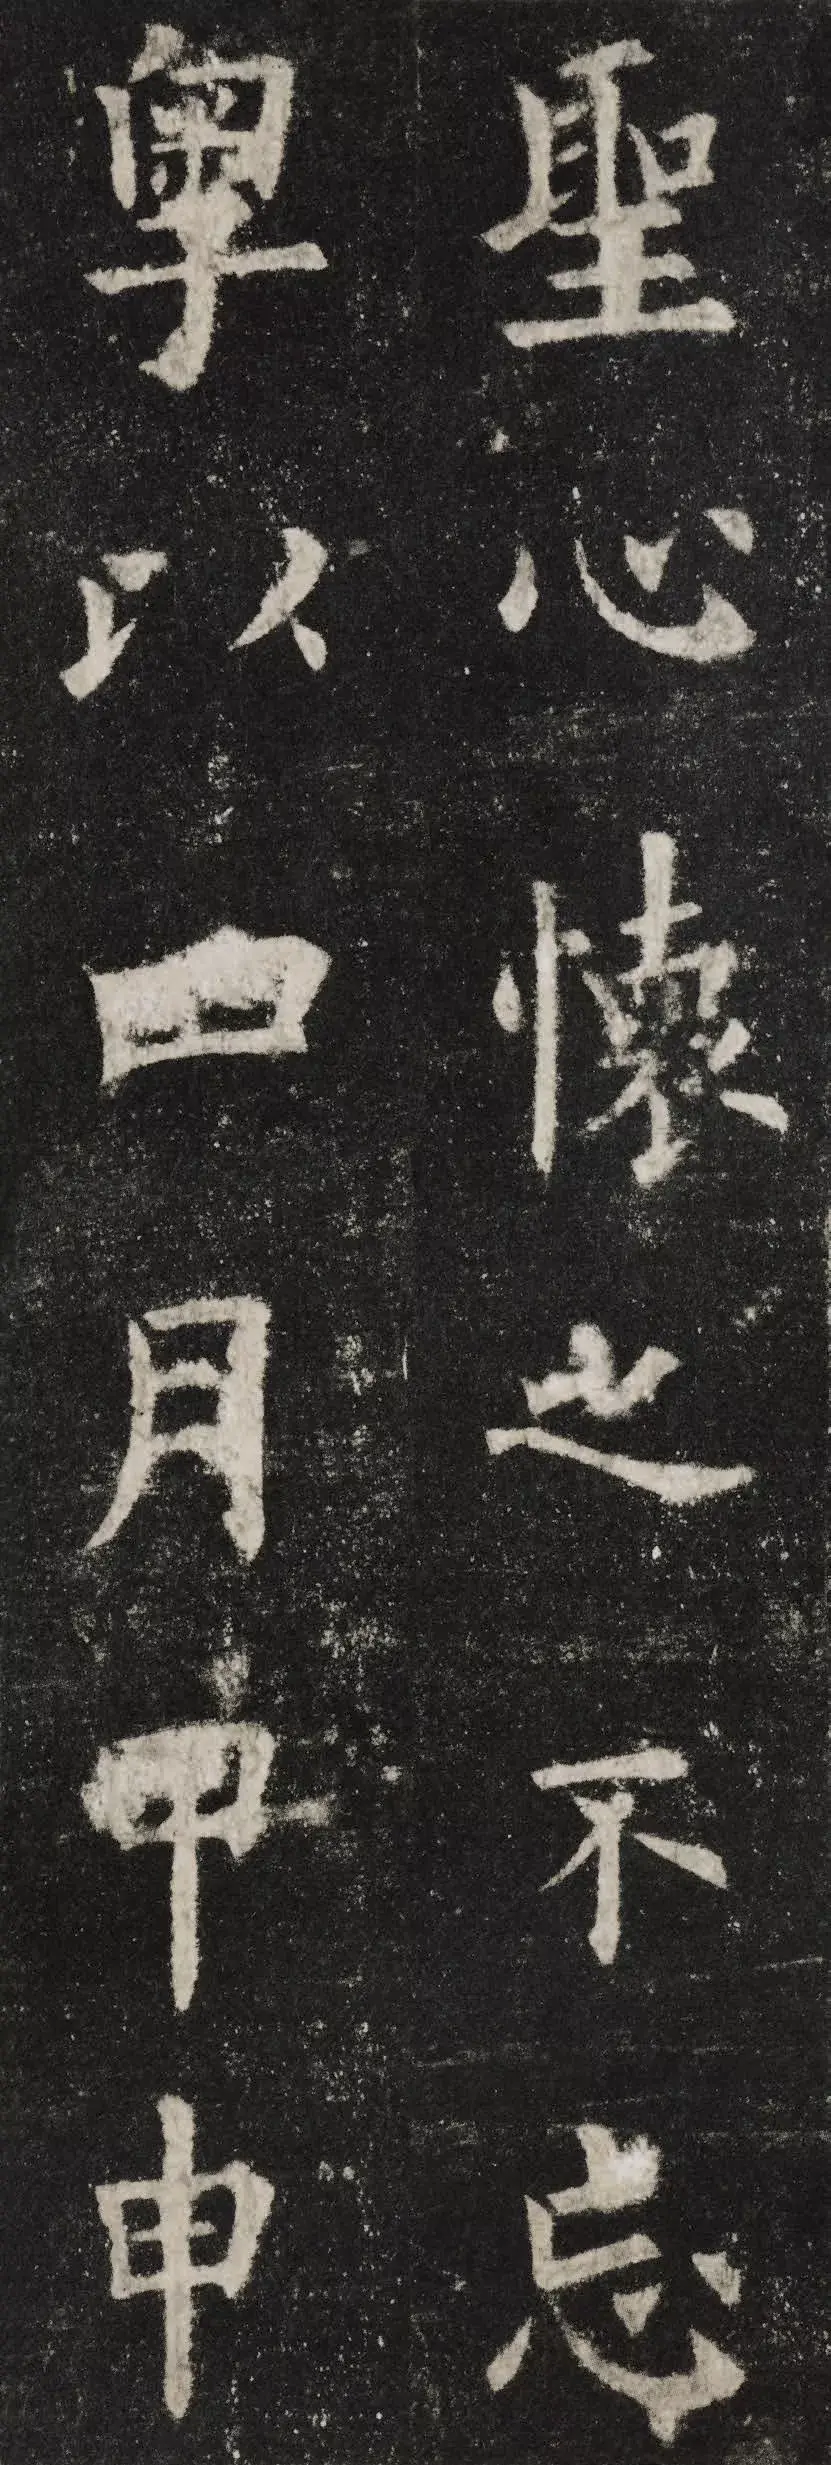 聖心懷之不忘
粤以四月甲申